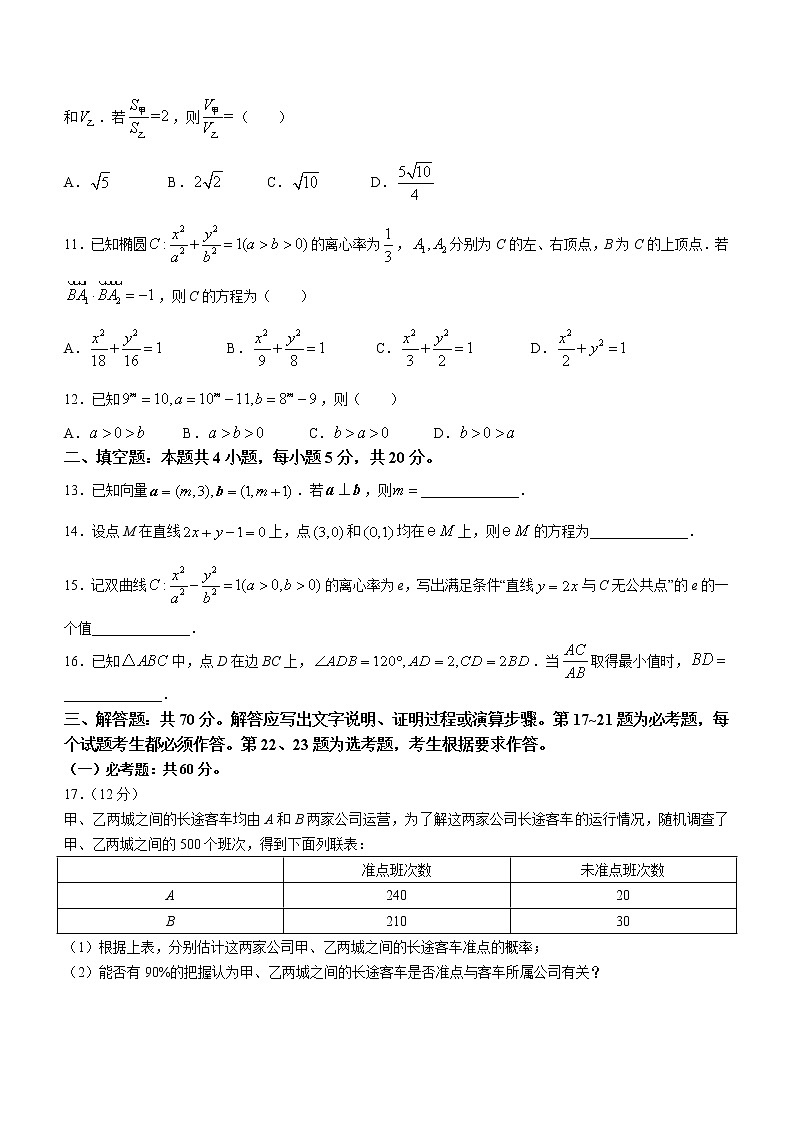 和V乙.若S甲/S乙=2,则V甲/V乙=(  )
A.√5 B.2√2 C.√10 D.5√10/4
11.已知椭圆C:x²/a²+y²/b²=1(a>b>0)的离心率为1/3,A₁,A₂分别为C的左、右顶点,B为C的上顶点.若
BA₁·BA₂=−1,则C的方程为(  )
A.x²/18+y²/16=1 B.x²/9+y²/8=1 C.x²/3+y²/2=1 D.x²/2+y²=1
12.已知9ᵐ=10,a=10ᵐ−11,b=8ᵐ−9,则(  )
A.a>0>b B.a>b>0 C.b>a>0 D.b>0>a
二、填空题:本题共4小题,每小题5分,共20分。
13.已知向量a=(m,3),b=(1,m+1).若a⊥b,则m=______________.
14.设点M在直线2x+y−1=0上,点(3,0)和(0,1)均在e M上,则e M的方程为______________.
15.记双曲线C:x²/a²−y²/b²=1(a>0,b>0)的离心率为e,写出满足条件“直线y=2x与C无公共点”的e的一
个值______________.
16.已知△ABC中,点D在边BC上,∠ADB=120°,AD=2,CD=2BD.当AC/AB取得最小值时,BD=
______________.
三、解答题:共70分。解答应写出文字说明、证明过程或演算步骤。第17~21题为必考题,每
个试题考生都必须作答。第22、23题为选考题,考生根据要求作答。
(一)必考题:共60分。
17.(12分)
甲、乙两城之间的长途客车均由A和B两家公司运营,为了解这两家公司长途客车的运行情况,随机调查了
甲、乙两城之间的500个班次,得到下面列联表:
准点班次数 未准点班次数
A 240 20
B 210 30
(1)根据上表,分别估计这两家公司甲、乙两城之间的长途客车准点的概率;
(2)能否有90%的把握认为甲、乙两城之间的长途客车是否准点与客车所属公司有关?